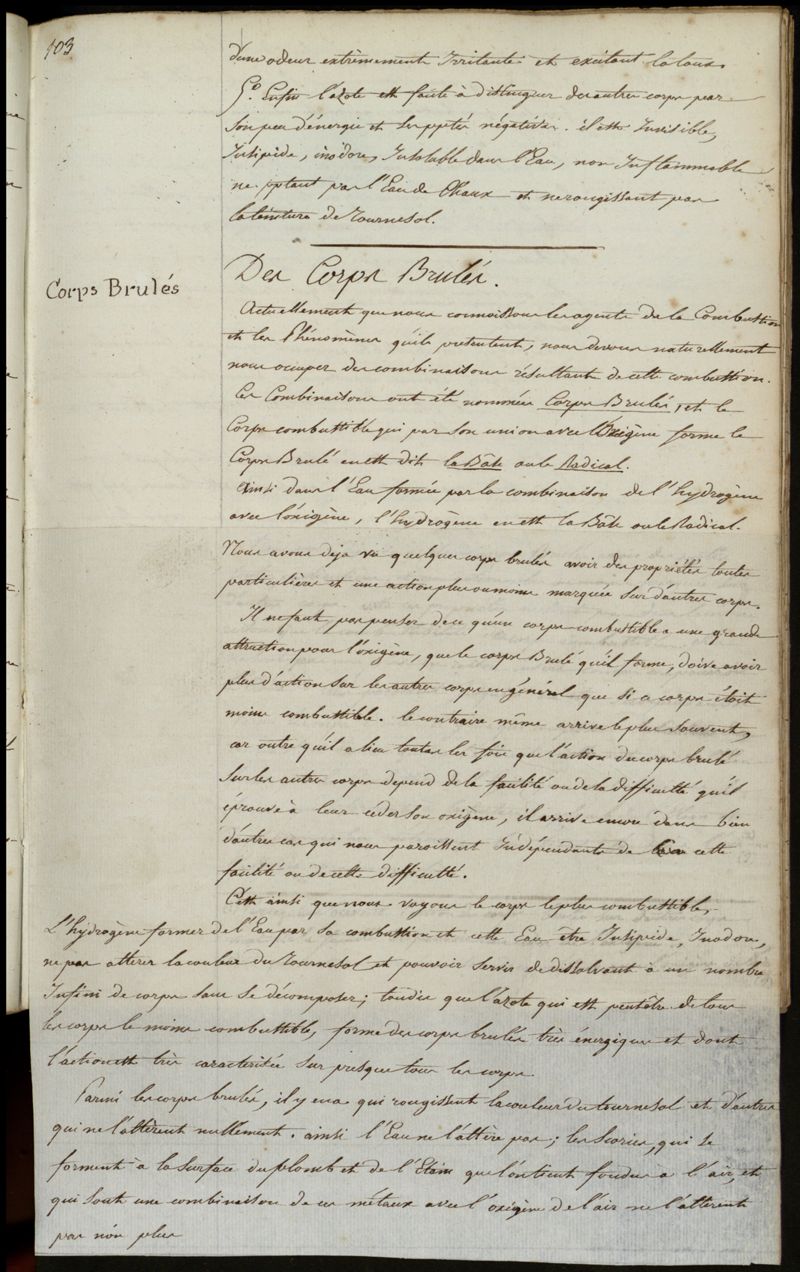 103
d'une odeur extrèmement Irritante et excitant la toux.
5º. Enfin l'azote est facile à distinguer des autres corps par
son peu d'énergie et ses pptés négatives. il est Invisible,
Insipide, inodore, Insoluble dans l'Eau, non Inflammable
ne pptant pas l'Eau de Chaux et ne rougissant pas
la teinture de Tournesol.
Corps Brulés
Des Corps Brulés.
Actuellement que nous connoissons les agents de la Combustion
et les Phénomènes qu'ils présentent, nous devons naturellement
nous occuper des combinaisons résultant de cette combustion.
Ces Combinaisons ont été nommées Corps Brulés, et le
Corps combustible qui par son union avec l'Oxigène forme le
Corps Brulé en est dit la Bâse ou le Radical.
Ainsi dans l'Eau formée par la combinaison de l'hydrogène
avec l'oxigène, l'hydrogène en est la Bâse ou le Radical.
Nous avons déja vu quelques corps brulés avoir des propriétés toutes
particulières et une action plus ou moins marquée sur d'autres corps.
Il ne faut pas penser de ce qu'un corps combustible a une grande
attraction pour l'oxigène, que le corps Brulé qu'il forme, doive avoir
plus d'action sur les autres corps en général que si ce corps étoit
moins combustible. le contraire même arrive le plus souvent,
car outre qu'il a lieu toutes les fois que l'action du corps brulé
sur les autres corps dépend de la facilité ou de la difficulté qu'il
éprouve à leur céder son oxigène, il arrive encore dans bien
d'autres cas qui nous paroissent Indépendants de cette
facilité ou de cette difficulté.
C'est ainsi que nous voyons le corps le plus combustible,
L'hydrogène former de l'Eau par sa combustion et cette Eau être Insipide, Inodore,
ne pas altérer la couleur du Tournesol et pouvoir servir de dissolvant à un nombre
Infini de corps sans se décomposer; tandis que l'azote qui est peutêtre de tous
les corps le moins combustible, forme des corps brulés très énergiques et dont
l'action est très caractérisée sur presque tous les corps
Parmi les corps brulés, il y en a qui rougissent la couleur du tournesol et d'autres
qui ne l'altèrent nullement. ainsi l'Eau ne l'altère pas; les scories, qui se
forment à la surface du plomb et de l'Etain que l'on tient fondus à l'air, et
qui sont une combinaison de ces métaux avec l'oxigène de l'air ne l'altèrent
pas nón plus